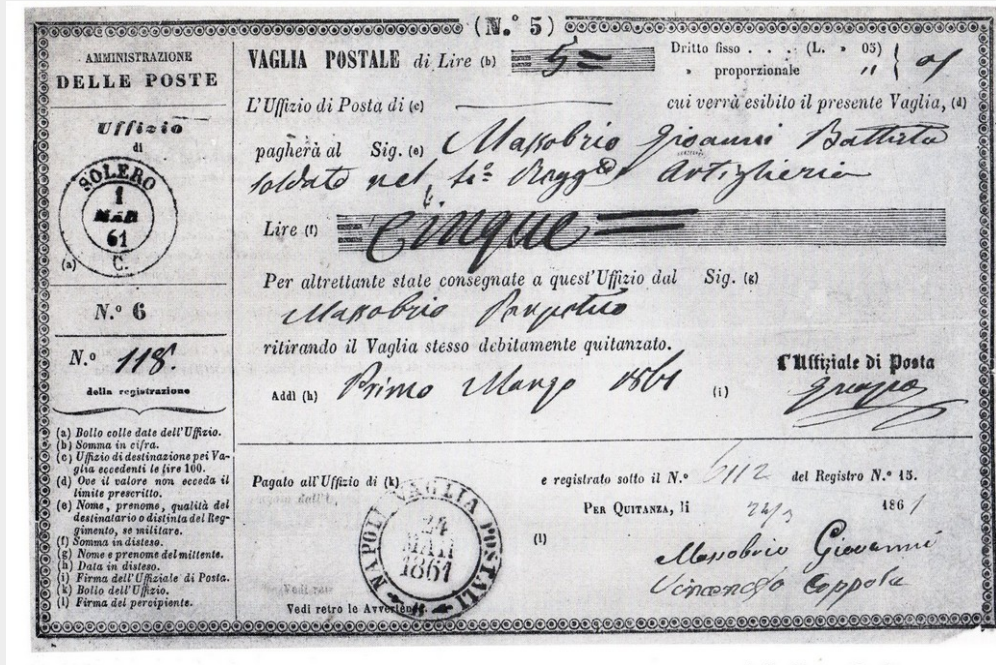 (N.° 5)
AMMINISTRAZIONE
DELLE POSTE
Uffizio
di
SOLERO
1
MAR
61
C.
(a)
N.° 6
N.° 118
della registrazione
(a) Bollo colle date dell'Uffizio.
(b) Somma in cifra.
(c) Uffizio di destinazione pei Va-
glia eccedenti le lire 100.
(d) Ove il valore non ecceda il
limite prescritto.
(e) Nome, prenome, qualità del
destinatario o distinta del Reg-
gimento, se militare.
(f) Somma in disteso.
(g) Nome e prenome del mittente.
(h) Data in disteso.
(i) Firma dell'Uffiziale di Posta.
(k) Bollo dell'Uffizio.
(l) Firma del percipiente.
VAGLIA POSTALE di Lire (b) 5=
Dritto fisso . . . (L. » 05)
» proporzionale "
L'Uffizio di Posta di (c) cui verrà esibito il presente Vaglia, (d)
pagherà al Sig. (e) Massobrio Gioanni Battista
soldato nel Regg Artiglieria
Lire (f) Cinque
Per altrettante state consegnate a quest'Uffizio dal Sig. (g)
Massobrio
ritirando il Vaglia stesso debitamente quitanzato.
Addì (h) Primo Marzo 1861 (i)
l'Uffiziale di Posta
Pagato all'Uffizio di (k)
NAPOLI VAGLIA POSTALI
24
MAR
1861
Vedi retro le Avvertenze.
e registrato sotto il N.° 6112 del Registro N.° 15.
PER QUITANZA, li 24/3 1861
(l)
Massobrio Giovanni
Coppola